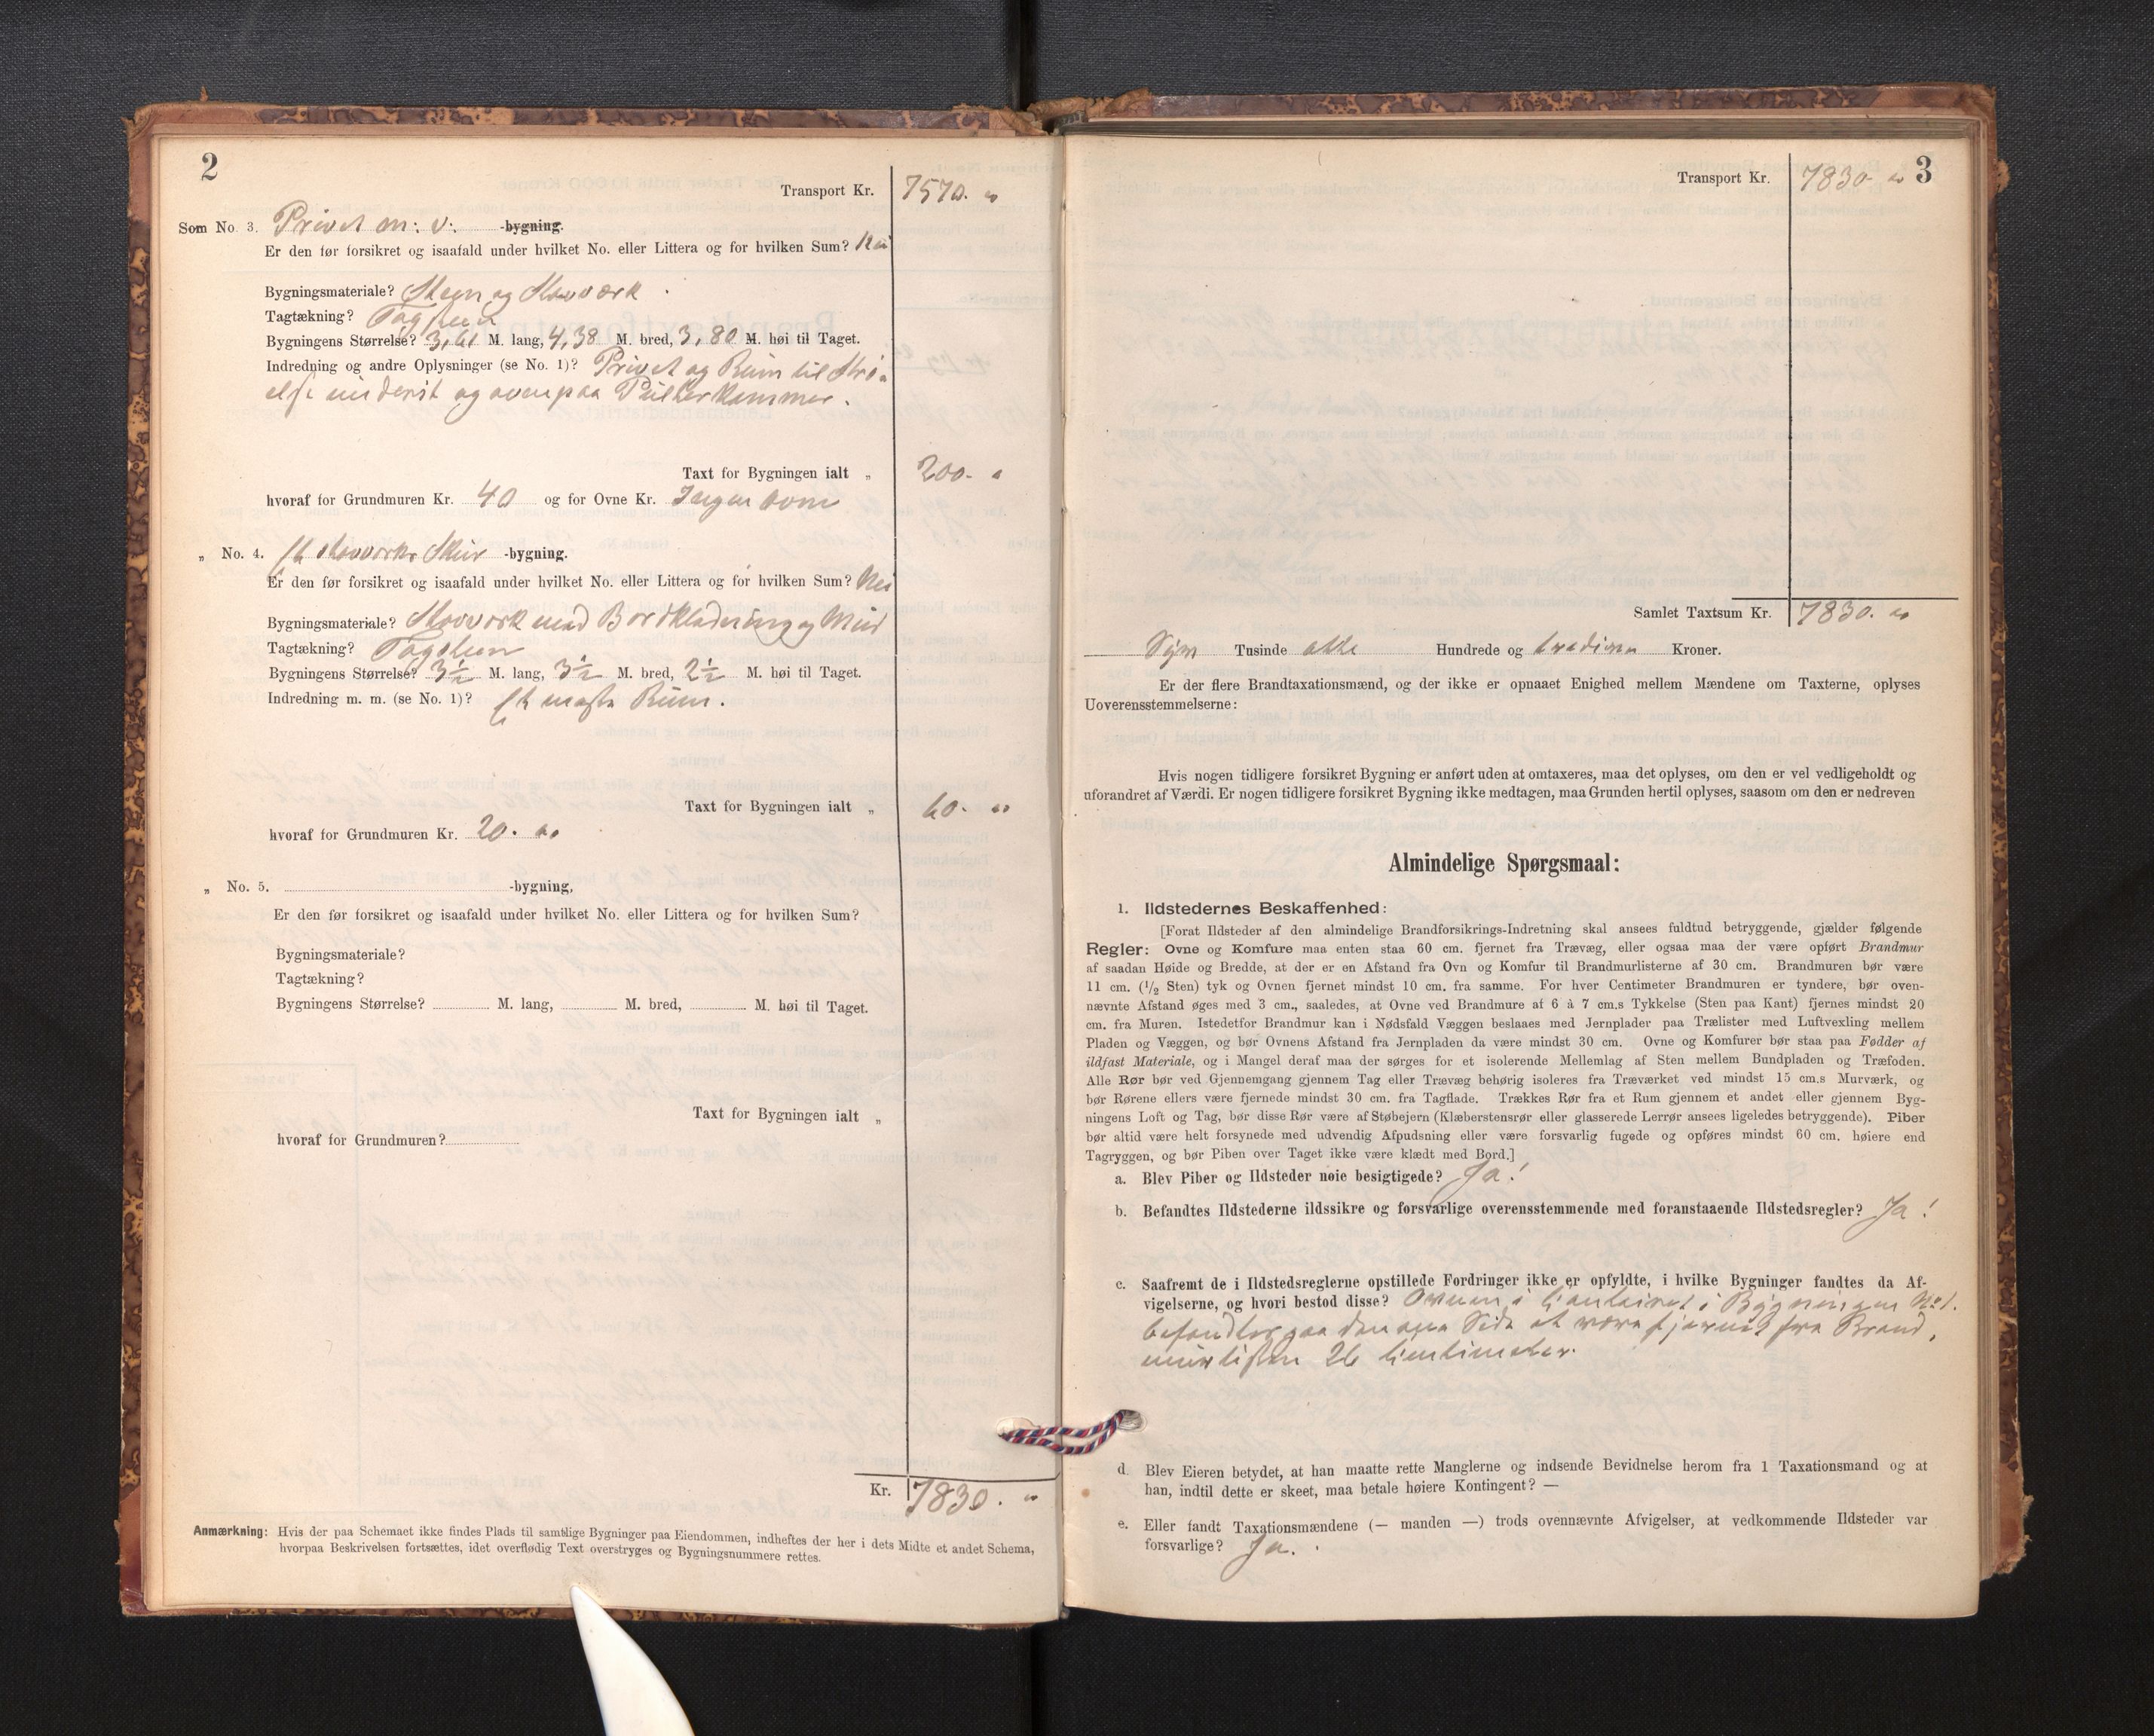 2
Transport Kr. 7570. "
Som No. 3. Privet m: v: -bygning.
Er den før forsikret og isaafald under hvilket No. eller Littera og for hvilken Sum? Nei
Bygningsmateriale? Steen og Stavværk.
Tagtækning? Tagsteen
Bygningens Størrelse? 3,61 M. lang, 4,38 M. bred, 3,80 M. høi til Taget.
Indredning og andre Oplysninger (se No. 1)? Privet og Rum til Strø-
else underst og ovenpaa Pulterkammer.
Taxt for Bygningen ialt „ 200. "
hvoraf for Grundmuren Kr. 40 og for Ovne Kr. Ingen ovne
„ No. 4. Et Stavværks Skur -bygning.
Er den før forsikret og isaafald under hvilket No. eller Littera og for hvilken Sum? Nei
Bygningsmateriale? Stavværk med Bordklædning og Muur
Tagtækning? Tagsteen
Bygningens Størrelse? 3½ M. lang, 3½ M. bred, 2½ M. høi til Taget.
Indredning m. m. (se No. 1)? Et Rum.
Taxt for Bygningen ialt „ 60. "
hvoraf for Grundmuren Kr. 20. "
„ No. 5. -bygning,
Er den før forsikret og isaafald under hvilket No. eller Littera og for hvilken Sum?
Bygningsmateriale?
Tagtækning?
Bygningens Størrelse? M. lang, M. bred, M. høi til Taget.
Taxt for Bygningen ialt „
hvoraf for Grundmuren?
Kr. 7830. "
Anmærkning: Hvis der paa Schemaet ikke findes Plads til samtlige Bygninger paa Eiendommen, indheftes der her i dets Midte et andet Schema,
hvorpaa Beskrivelsen fortsættes, idet overflødig Text overstryges og Bygningsnummere rettes.
3
Transport Kr. 7830. "
Samlet Taxtsum Kr. 7830. "
Syv Tusinde otte Hundrede og tredive Kroner.
Er der flere Brandtaxationsmænd, og der ikke er opnaaet Enighed mellem Mændene om Taxterne, oplyses
Uoverensstemmelserne:
Hvis nogen tidligere forsikret Bygning er anført uden at omtaxeres, maa det oplyses, om den er vel vedligeholdt og
uforandret af Værdi. Er nogen tidligere forsikret Bygning ikke medtagen, maa Grunden hertil oplyses, saasom om den er nedreven
Almindelige Spørgsmaal:
1. Ildstedernes Beskaffenhed:
[Forat Ildsteder af den almindelige Brandforsikrings-Indretning skal ansees fuldtud betryggende, gjælder følgende
Regler: Ovne og Komfure maa enten staa 60 cm. fjernet fra Trævæg, eller ogsaa maa der være opført Brandmur
af saadan Høide og Bredde, at der er en Afstand fra Ovn og Komfur til Brandmurlisterne af 30 cm. Brandmuren bør være
11 cm. (1/2 Sten) tyk og Ovnen fjernet mindst 10 cm. fra samme. For hver Centimeter Brandmuren er tyndere, bør oven-
nævnte Afstand øges med 3 cm., saaledes, at Ovne ved Brandmure af 6 à 7 cm.s Tykkelse (Sten paa Kant) fjernes mindst 20
cm. fra Muren. Istedetfor Brandmur kan i Nødsfald Væggen beslaaes med Jernplader paa Trælister med Luftvexling mellem
Pladen og Væggen, og bør Ovnens Afstand fra Jernpladen da være mindst 30 cm. Ovne og Komfurer bør staa paa Fødder af
ildfast Materiale, og i Mangel deraf maa der sørges for et isolerende Mellemlag af Sten mellem Bundpladen og Træfoden.
Alle Rør bør ved Gjennemgang gjennem Tag eller Trævæg behørig isoleres fra Træværket ved mindst 15 cm.s Murværk, og
bør Rørene ellers være fjernede mindst 30 cm. fra Tagflade. Trækkes Rør fra et Rum gjennem et andet eller gjennem Byg-
ningens Loft og Tag, bør disse Rør være af Støbejern (Klæberstensrør eller glasserede Lerrør ansees ligeledes betryggende). Piber
bør altid være helt forsynede med udvendig Afpudsning eller være forsvarlig fugede og opføres mindst 60 cm. høiere end
Tagryggen, og bør Piben over Taget ikke være klædt med Bord.]
a. Blev Piber og Ildsteder nøie besigtigede? Ja!
b. Befandtes Ildstederne ildssikre og forsvarlige overensstemmende med foranstaaende Ildstedsregler? Ja!
c. Saafremt de i Ildstedsreglerne opstillede Fordringer ikke er opfyldte, i hvilke Bygninger fandtes da Af-
vigelserne, og hvori bestod disse? Ovnen i i Bygningen No 1.
befandtes paa den ene Side at være fjernet fra Brand,
murlisten 26 Centimeter.
d. Blev Eieren betydet, at han maatte rette Manglerne og indsende Bevidnelse herom fra 1 Taxationsmand og at
han, indtil dette er skeet, maa betale høiere Kontingent? —
e. Eller fandt Taxationsmændene (— manden —) trods ovennævnte Afvigelser, at vedkommende Ildsteder var
forsvarlige? Ja.